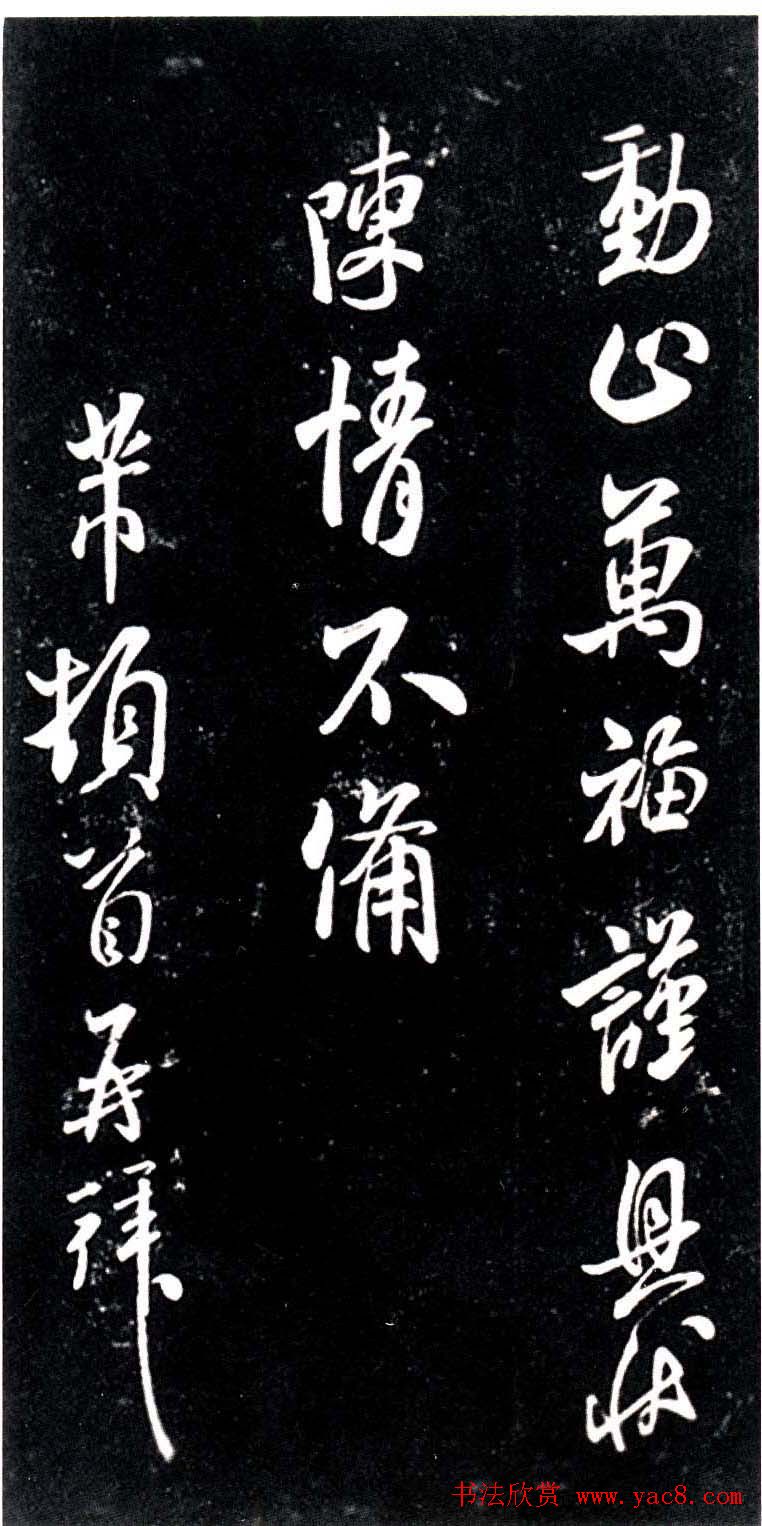 動止萬福謹具狀
陳情不備
芾頓首再拜
书法欣赏 www.yac8.com